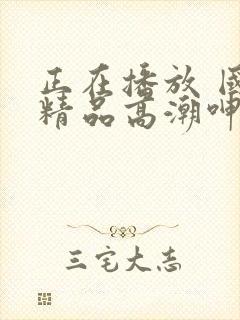 正在播放 国
精品高潮呻
三宅大志